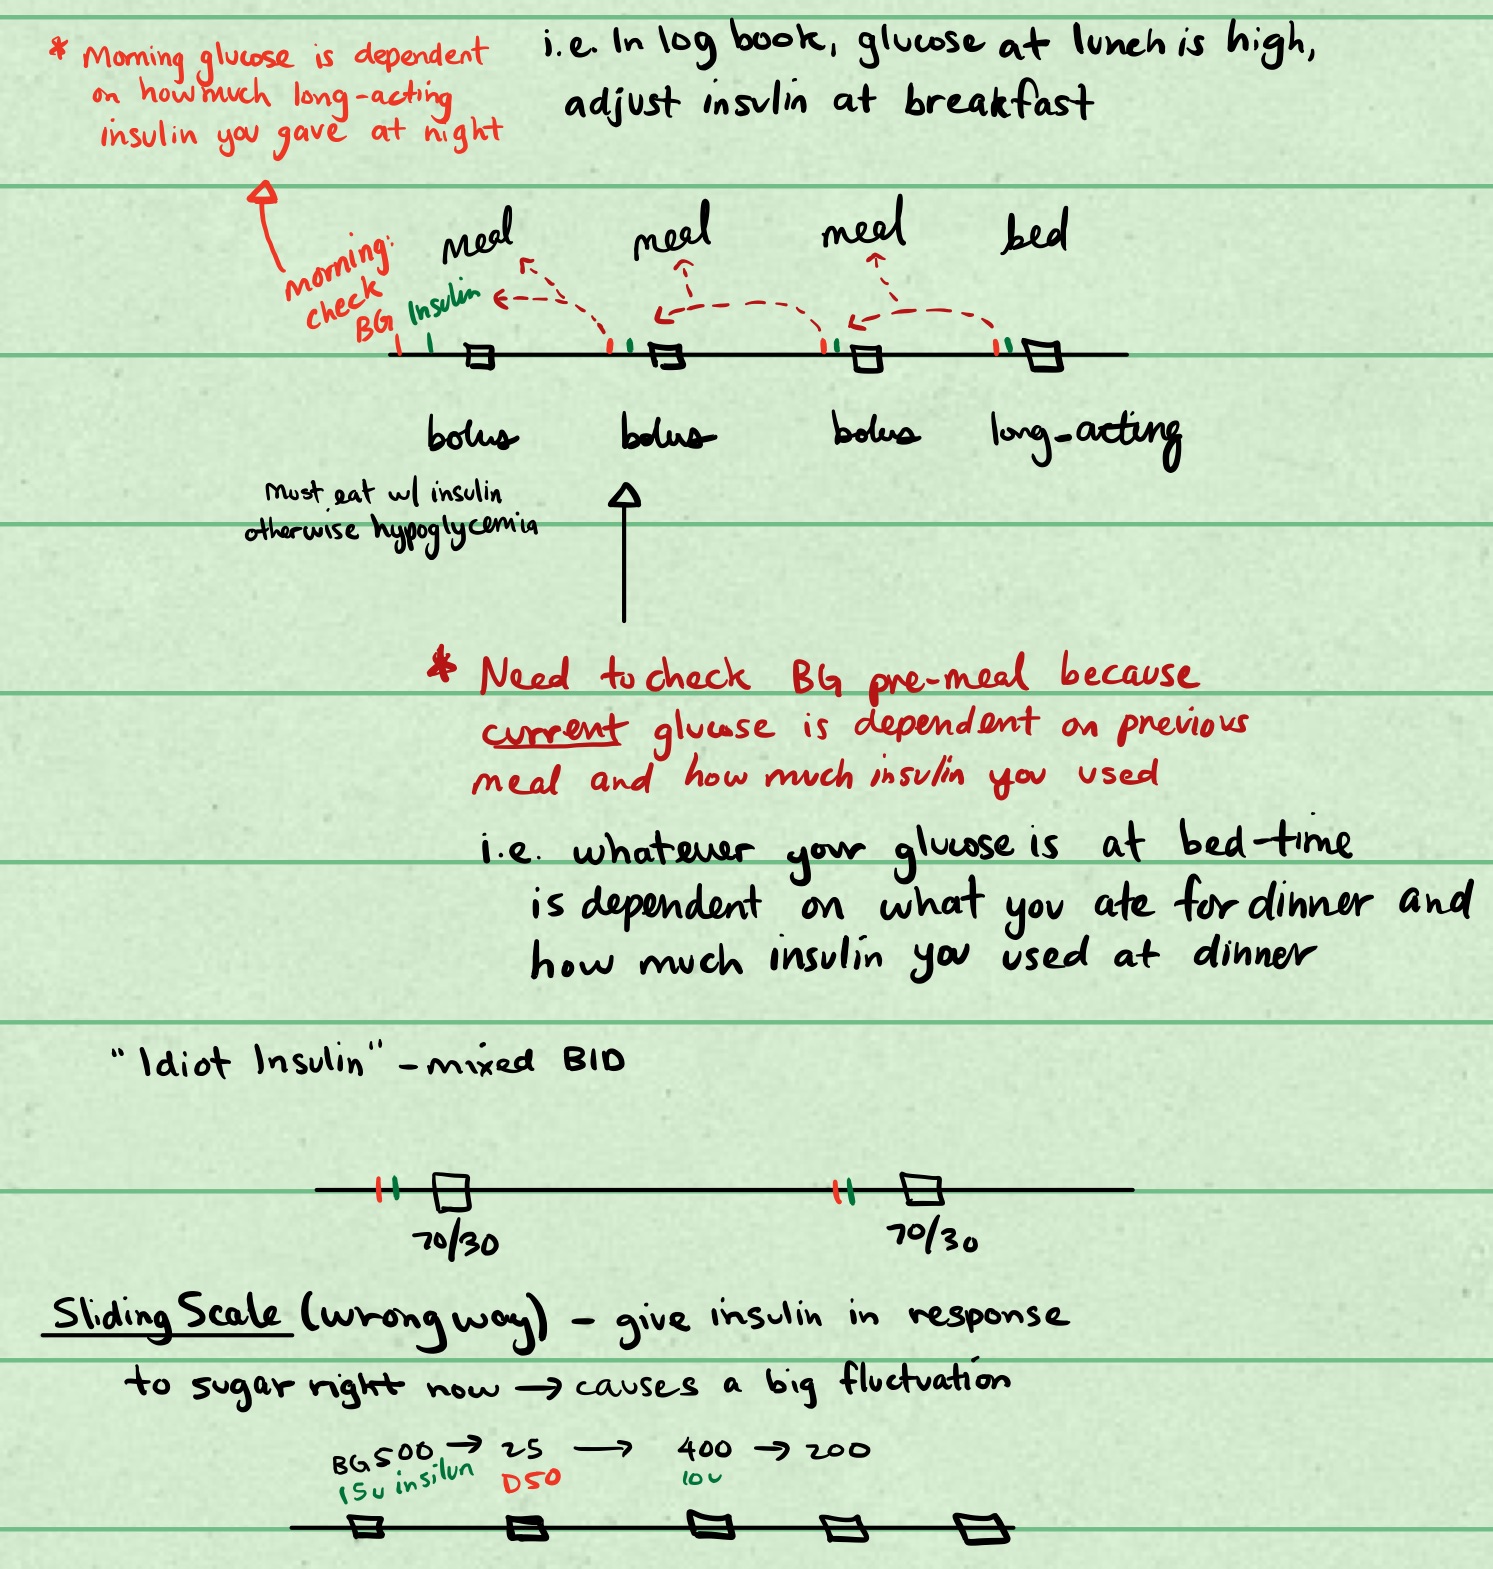 * Morning glucose is dependent
on how much long-acting
insulin you gave at night
i.e. In log book, glucose at lunch is high,
adjust insulin at breakfast
meal meal meal bed
morning:
check
BG
Insulin
bolus bolus bolus long-acting
Must eat w/ insulin
otherwise hypoglycemia
* Need to check BG pre-meal because
current glucose is dependent on previous
meal and how much insulin you used
i.e. whatever your glucose is at bed-time
is dependent on what you ate for dinner and
how much insulin you used at dinner
"Idiot Insulin" - mixed BID
70/30 70/30
Sliding Scale (wrong way) - give insulin in response
to sugar right now → causes a big fluctuation
BG 500 → 25 → 400 → 200
15u insilun D50 10u